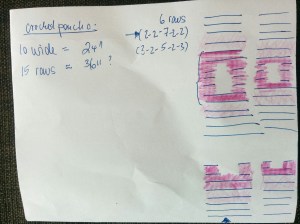 crochet poncho:
10 wide = 24"
15 rows = 36" ?
6 rows
(2-2-7-2-2)
(3-2-5-2-3)